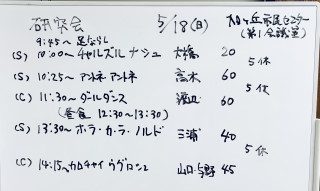 研究会 5/18(日) 旭ヶ丘市民センター
(第1会議室)
9:45～ 足ならし
(S) 10:00～ チャルズル ナシュ 大橋 20
5休
(S) 10:25～ アントネ アントネ 高木 60
5休
(C) 11:30～ ダールダンス 渡辺 60
(昼食 12:30～13:30)
(S) 13:30～ ホラ・カ・ラ・ノルド 三浦 40
5休
(C) 14:15～ カロチャイ ラグロン2 山口・与野 45